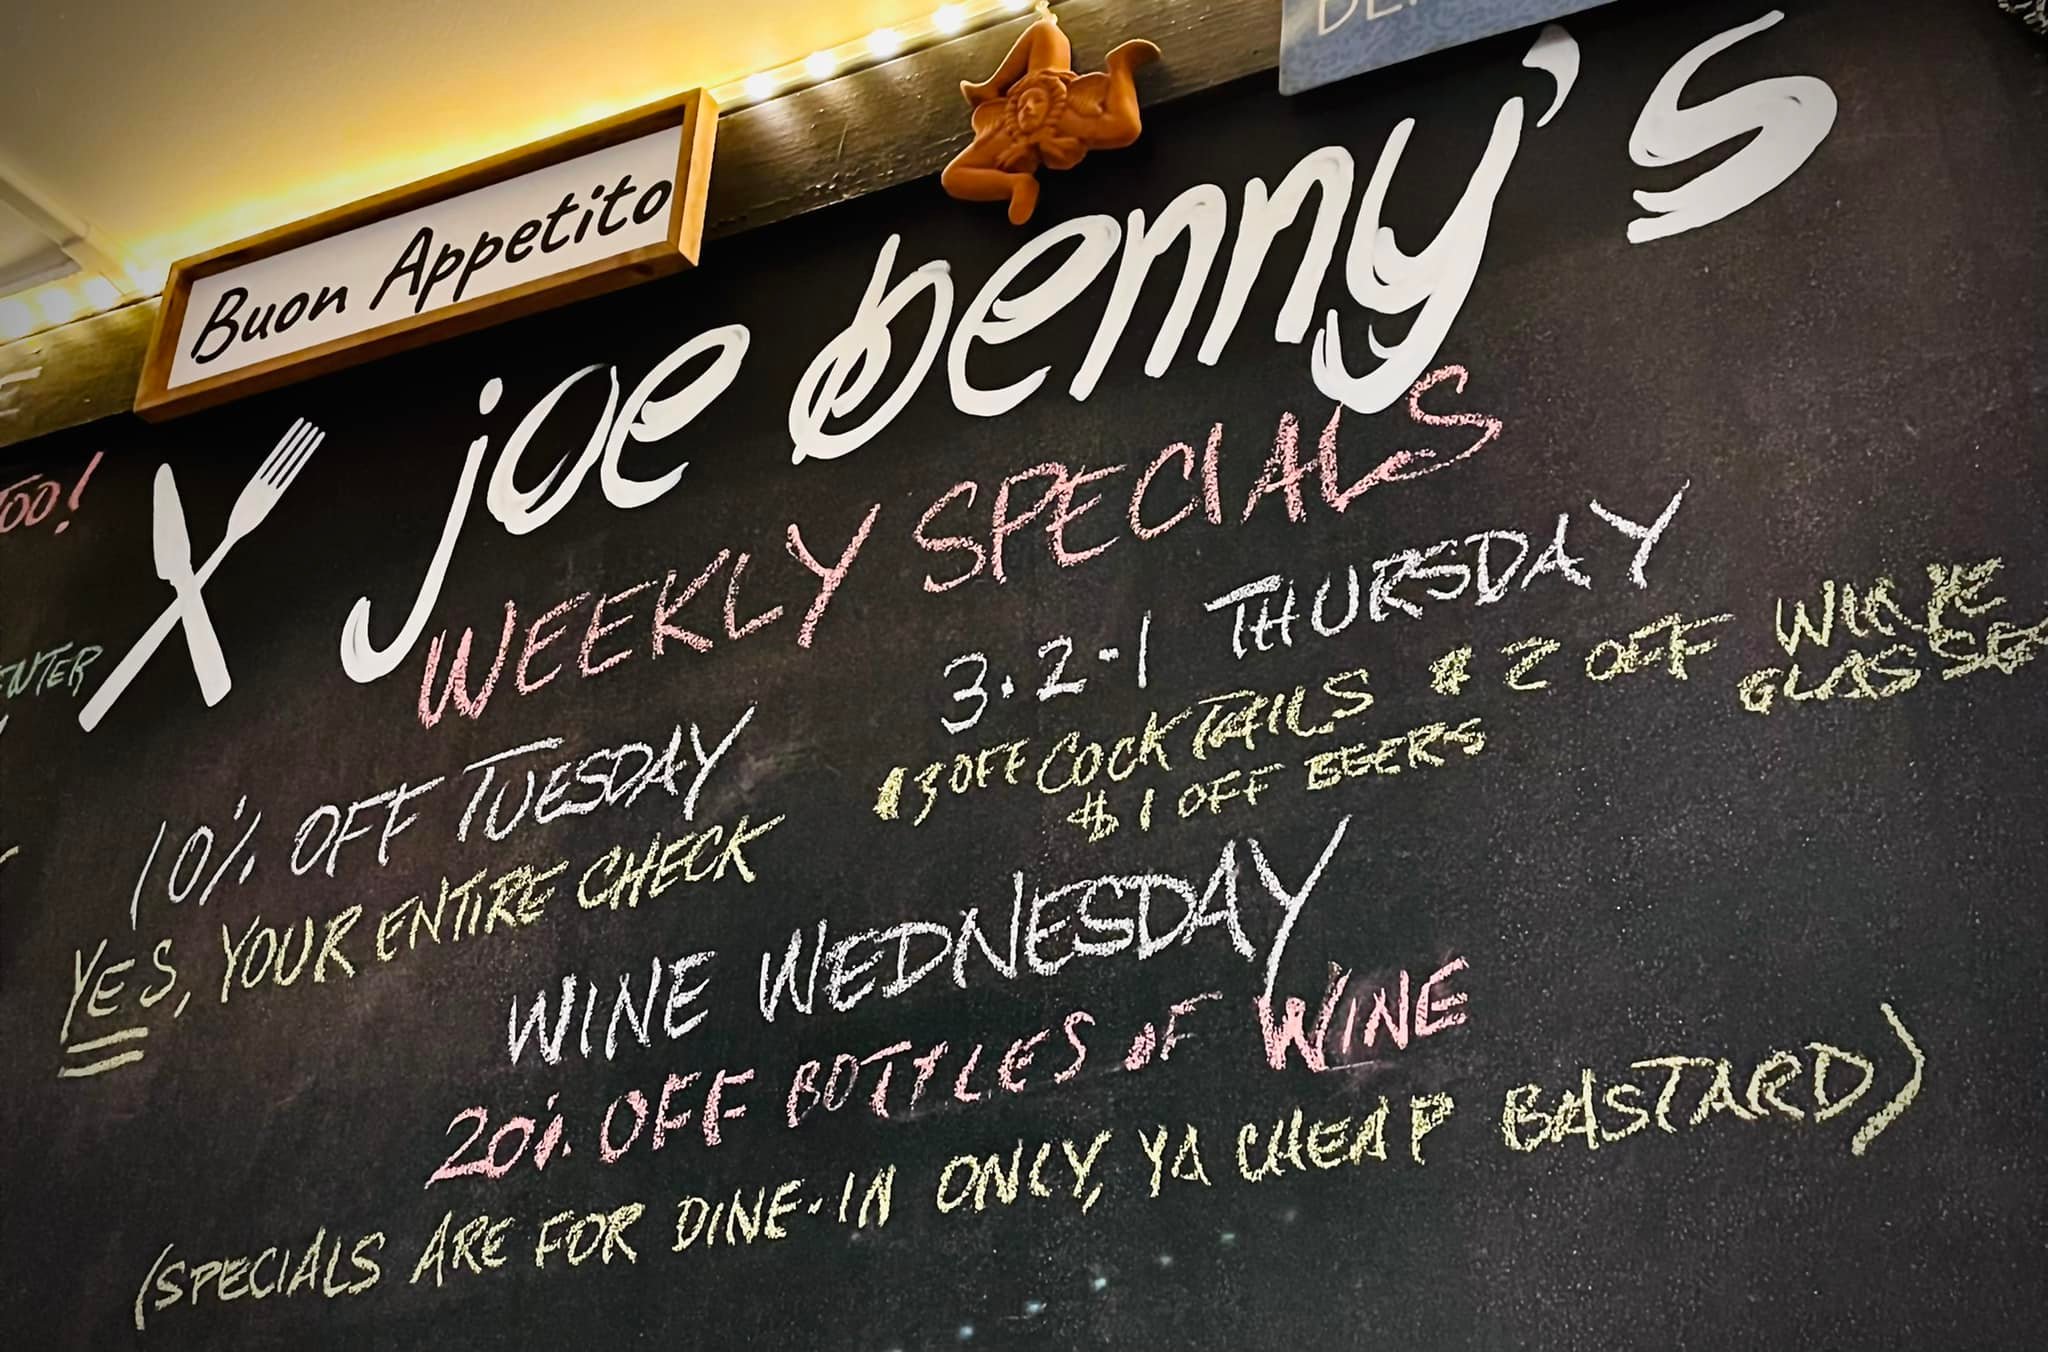 Buon Appetito
joe benny's
WEEKLY SPECIALS
TOO!
ENTER
10% OFF TUESDAY
YES, YOUR ENTIRE CHECK
3·2·1 THURSDAY
$3 OFF COCKTAILS $2 OFF WINE GLASSES
$1 OFF BEERS
WINE WEDNESDAY
20% OFF BOTTLES OF WINE
(SPECIALS ARE FOR DINE-IN ONLY, YA CHEAP BASTARD)